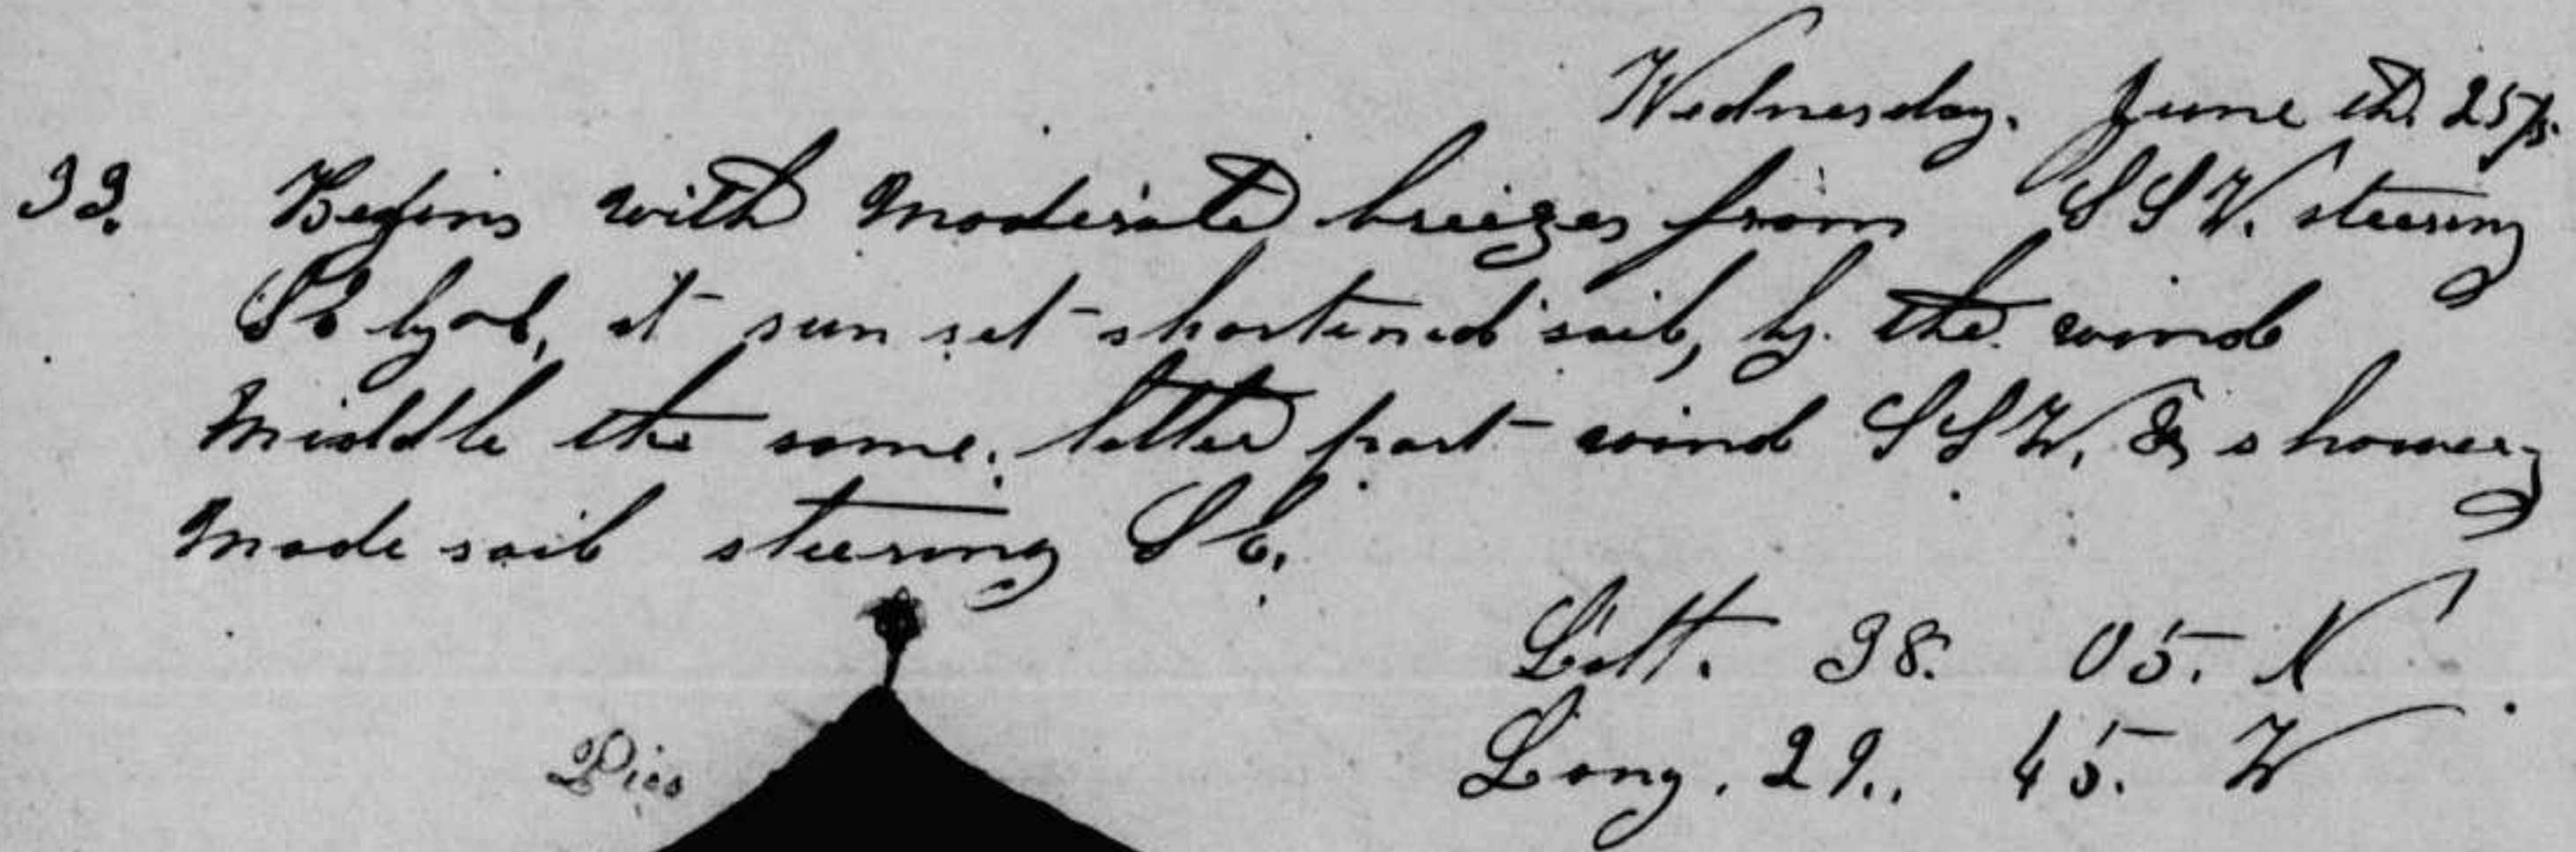 Wednesday. June th. 25th.
33. Begins with Moderate breizes from SSW. steering
SE by E, at sun set shortened sail, by. the wind
Middle the same. latter part wind SSW, & showery
Made sail steering SE.
Latt. 38. 05. N
Long. 29.. 45. W
Pico